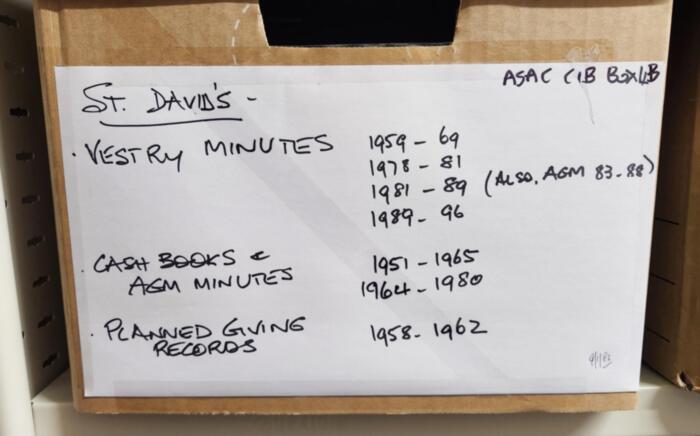 ASAC C1B Box 4B
ST. DAVID'S -
· VESTRY MINUTES 1959 - 69
1978 - 81
1981 - 89 (ALSO, AGM 83-88)
1989 - 96
· CASH BOOKS & 1951 - 1965
AGM MINUTES 1964 - 1980
· PLANNED GIVING 1958 - 1962
RECORDS